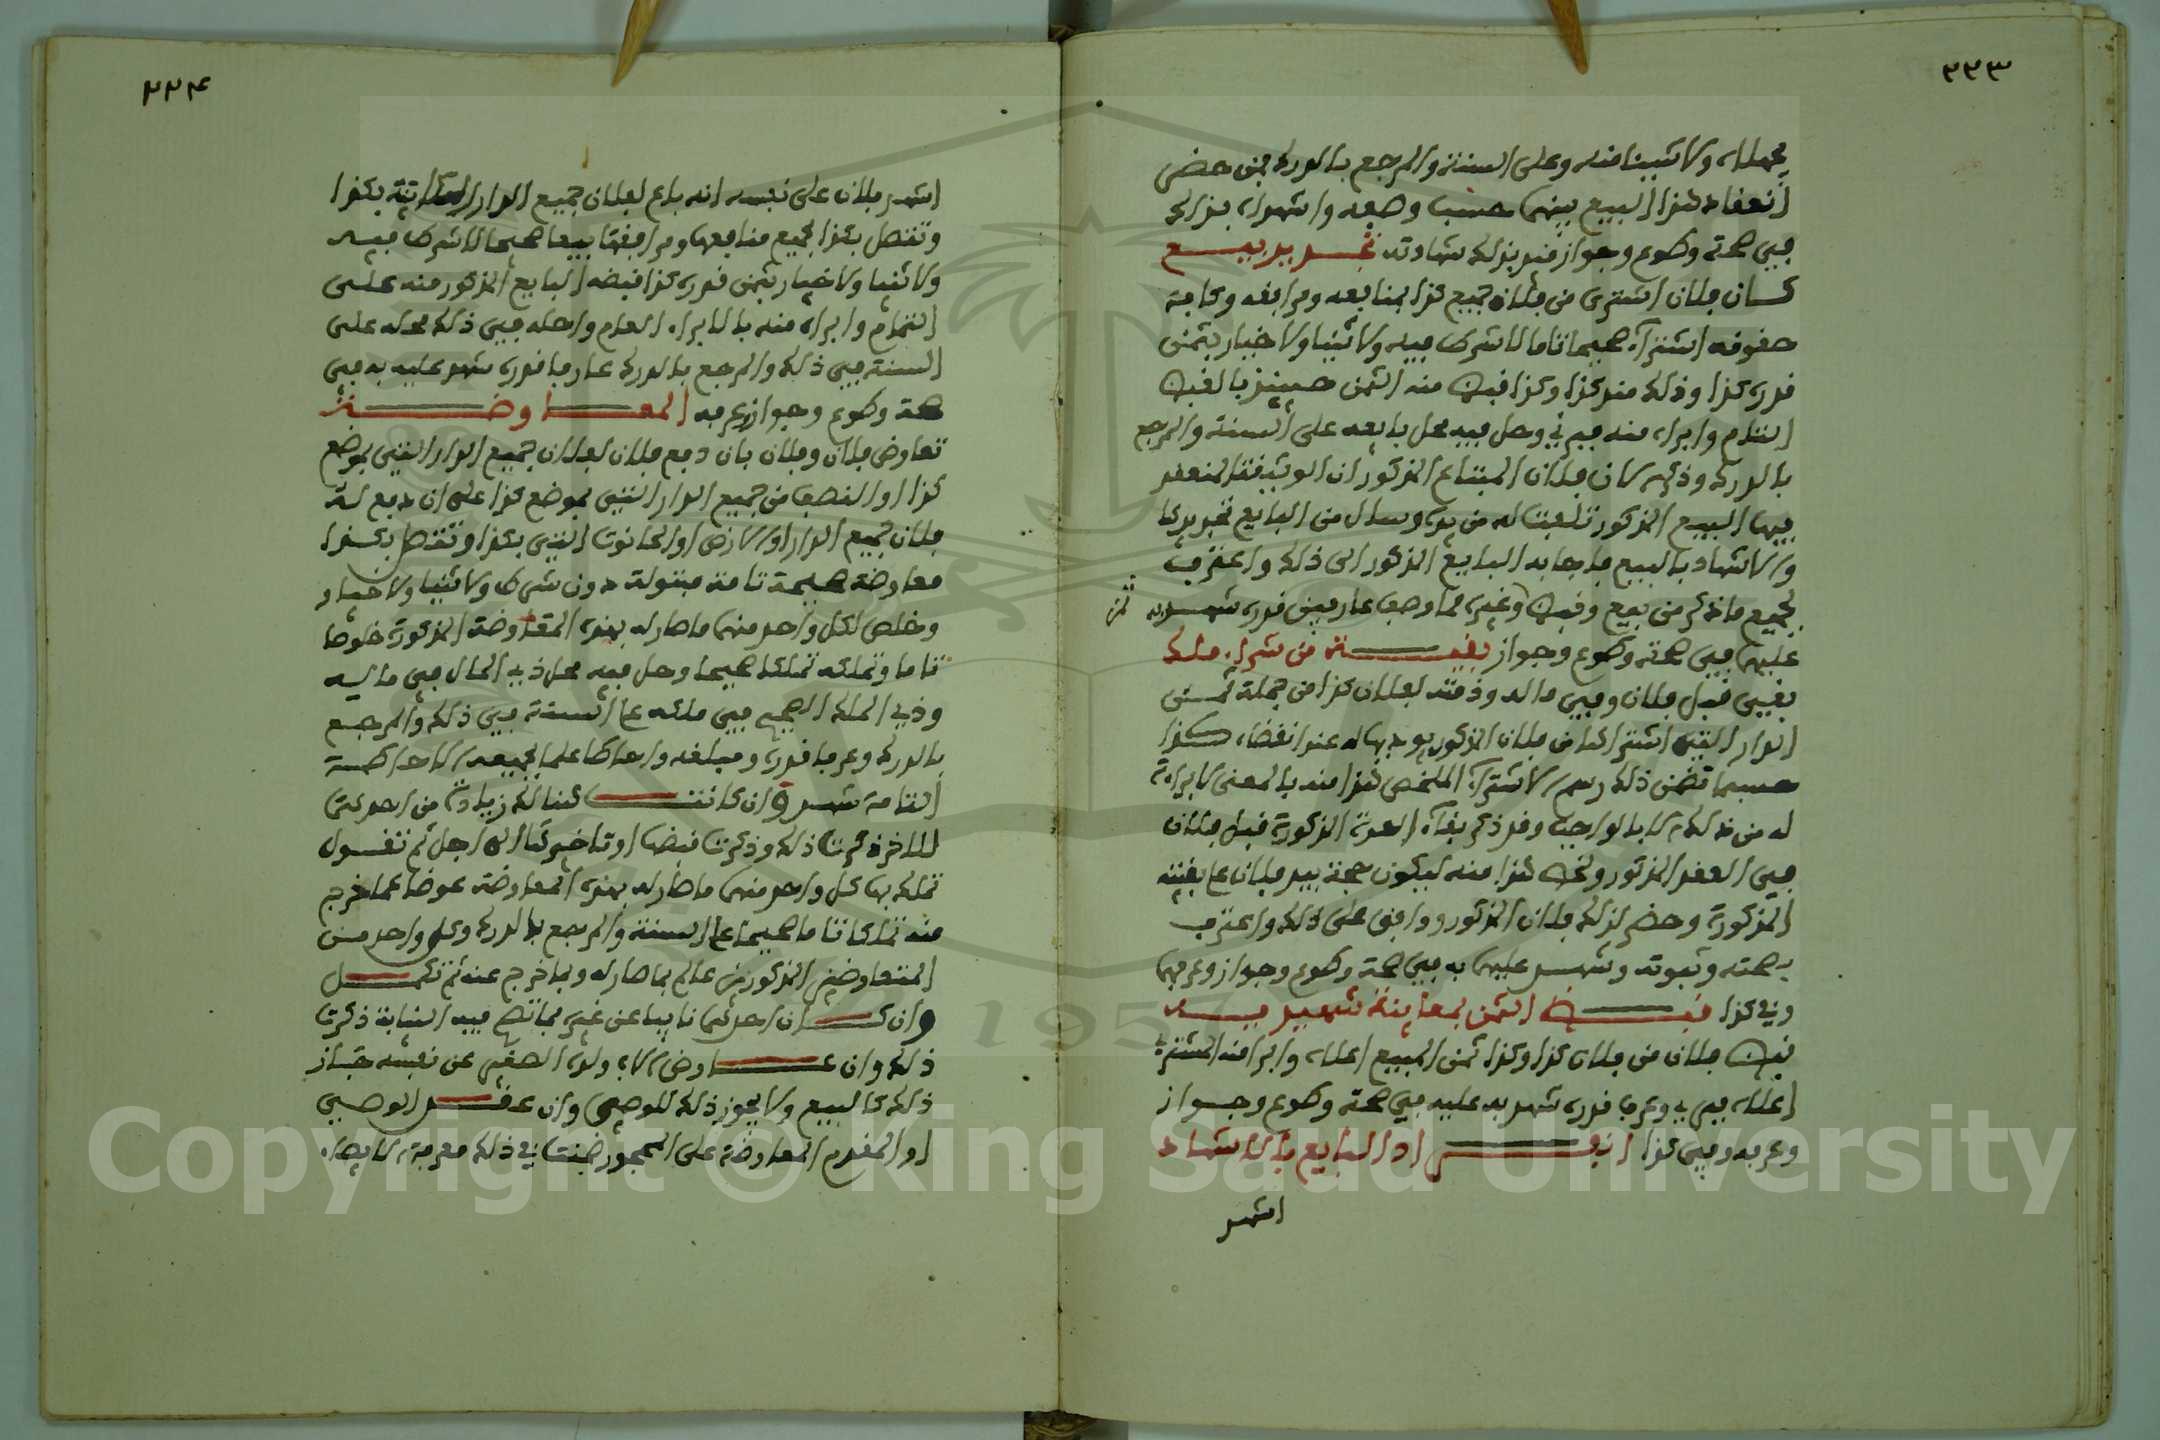 ٣٣٣
بجملاه ولا شيينا منه وعلى السنة والمرجع بالدرك فمن حضر
انعقاد هذا البيع بينهما حسب وصفه واشهداه بذلك
في صحة وطوع وجواز قيد بذلك شهادته تجديد بيع
كان فلان اشترى من فلان جميع كذا بمنافعه ومرافقه وكافة
حقوقه اشتراء صحيحا تاما لا شرط فيه ولا ثنيا ولا خيار بثمن
قدره كذا وذلك منذ كذا وكذا قبض منه الثمن حينئذ بالقبض
التام وابراه منه فبرئ وحل فيه محل بايعه على السنة والمرجع
بالدرك وذكر الان فلان المبتاع المذكور ان الوثيقة المنعقد
فيها البيع المذكور تلفت له من يده وسال من البايع تجديدها
والاشهاد بالبيع فاجابه البايع المذكور الى ذلك واعترف
بجميع ما ذكر من بيع وقبض وغيره مما وصف عارفين قدره شهد به
ثمن
عليهما في صحة وطوع وجواز بقيـة من شراء ملك
بقي قبل فلان وفي ماله وذمته لفلان كذا من جملة ثمن
الدار التي اشتراها من فلان المذكور يوديها له عند انقضاء كذا
حسبما تضمن ذلك رسم الاشتراء الملخص هذا منه بالمعنى لا براءة
له من ذلك الا بالواجب وقد ذكر بقاء العدة المذكورة قبل فلان
في العقد المذكور ولخص هذا منه ليكون حجة بيد فلان عا بقيته
المذكورة وحضر لذلك فلان المذكور ووافق على ذلك واعترف
بصحته وثبوته وشهد عليهما به في صحة وطوع وجواز وعرفهما
وفي كذا قبـض الثمن بمعاينة شهيديـه
قبض فلان من فلان كذا وكذا ثمن المبيع اعلاه وابرا منه المشتري
اعلاه فبرئ وعرف قدره شهد به عليه في صحة وطوع وجواز
وعرفه وفي كذا انفـراد البايع بالاشهاد
اشهد
٣٣٤
اشهد فلان على نفسه انه باع لفلان جميع الدار الكائنة بكذا
وتتصل بكذا بجميع منافعها ومرافقها بيعا صحيحا لا شرط فيه
ولا ثنيا ولا خيار بثمن قدره كذا قبضه البايع المذكور منه على
التمام وابراه منه بالابراء العام واحله في ذلك محله على
السنة في ذلك والمرجع بالدرك عارفا قدره شهد عليه به في
صحة وطوع وجواز وعرفه المعـاوضـة
تعاوض فلان وفلان بان دفع فلان لفلان جميع الدار التي بموضع
كذا او النصف من جميع الدار التي بموضع كذا على ان دفع له
فلان جميع الدار او الارض او الحانوت التي بكذا وتتصل بكذا
معاوضة صحيحة تامة مبتولة دون شرط ولا ثنيا ولا خيار
وخلص لكل واحد منهما ما صار له بهذه المعاوضة المذكورة خلوصا
تاما وتملكه تملكا صحيحا وحل فيه محل ذي المال في ماله
وذي الملك الصحيح في ملكه عا السنة في ذلك والمرجع
بالدرك وعرفا قدره ومبلغه واحاطا علما بجميعه الاحاطة
التامة شهد وان كانـت هنالك زيادة من احدهما
للاخر ذكرت ذلك وذكرت قبضها او تاخيرها الى اجل ثم تقول
تملك بها كل واحد منهما ما صار له بهذه المعاوضة عوضا عما خرج
منه تملكا تاما صحيحا عا السنة والمرجع بالدرك وكل واحد من
المتعاوضين المذكورين عالم بما صار له وبما خرج عنه ثم تكمـل
وان كـان احدهما نايبا عن غيره مما تصح فيه النيابة ذكرت
ذلك وان عـاوض الاب ولده الصغير عن نفسه جاز
ذلك كالبيع ولا يجوز ذلك للوصي وان عقـد الوصي
او المقدم المعاوضة على المحجور ضمنت في ذلك معرفة الايصاء